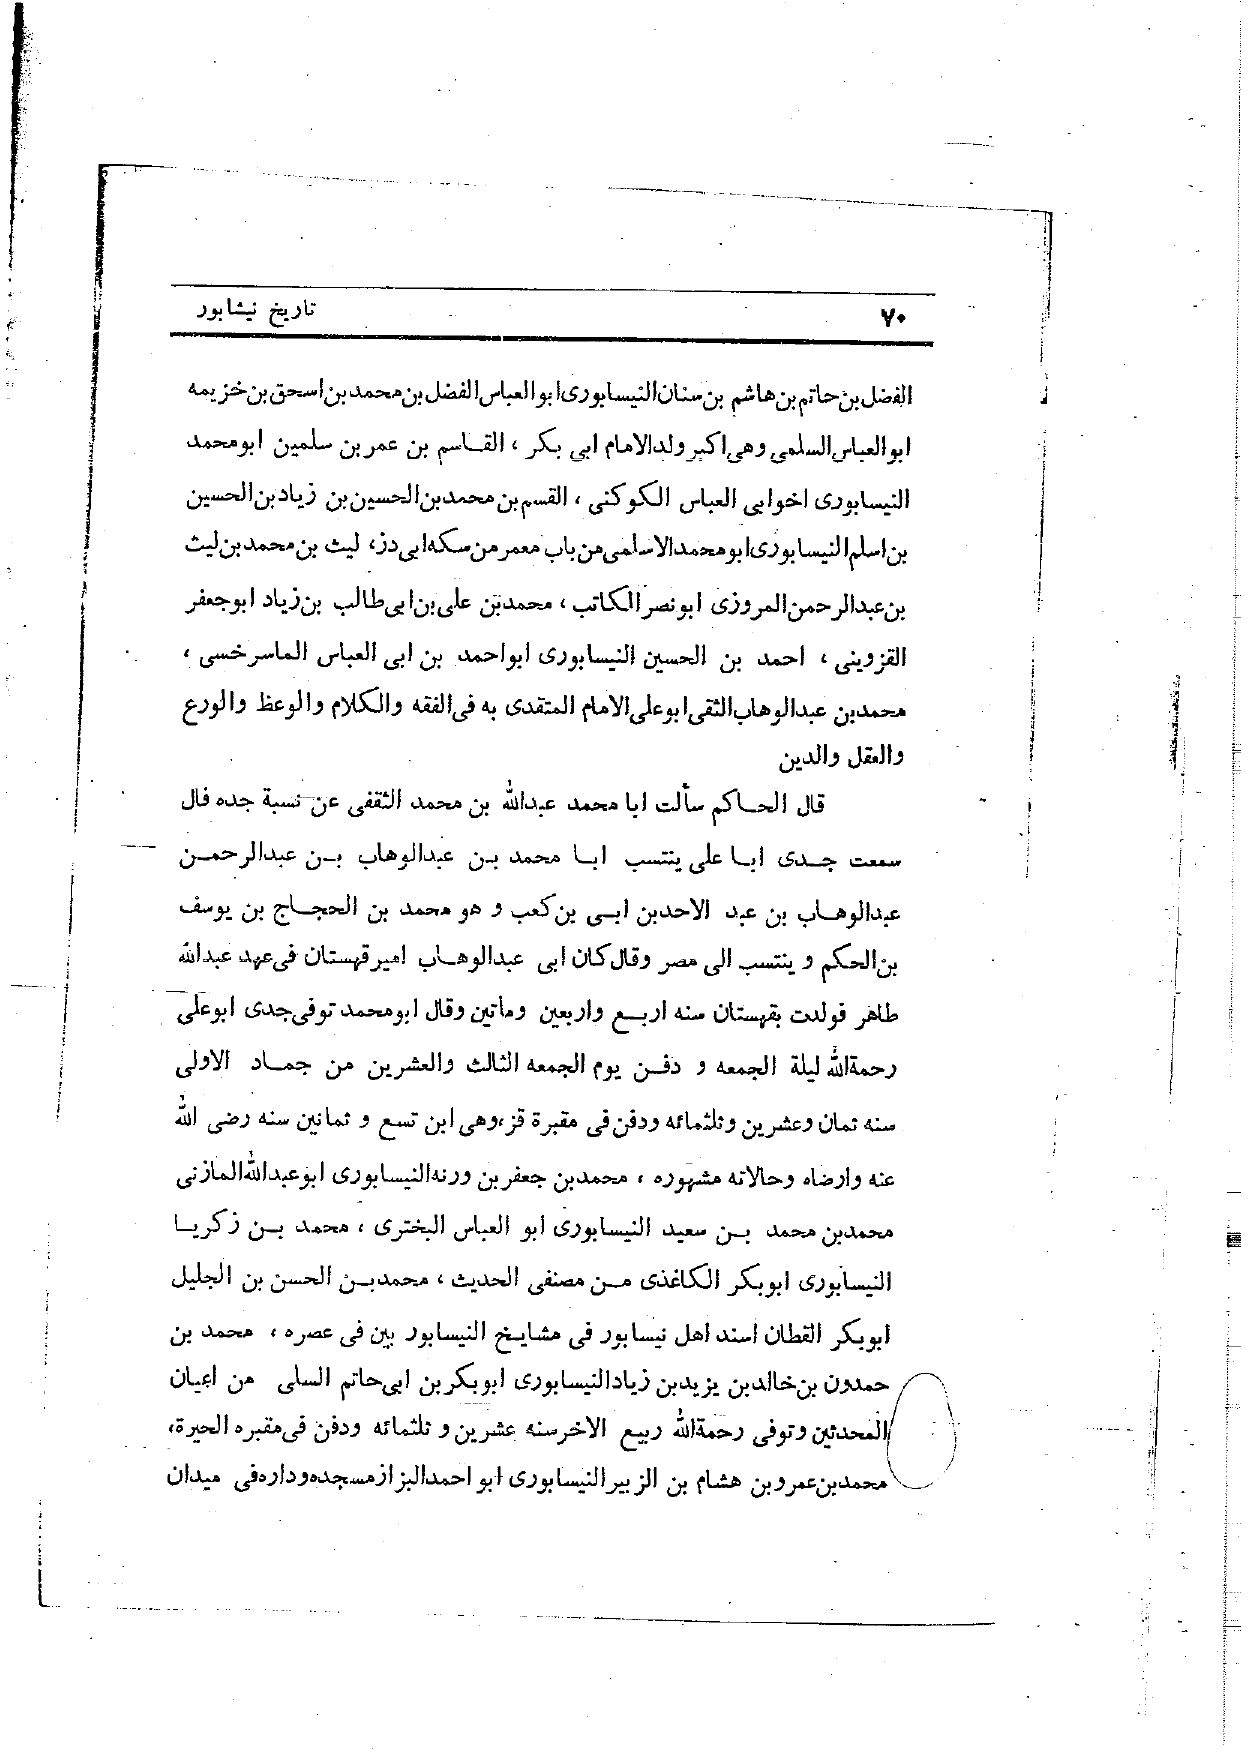 ۷۰ تاریخ نیشابور
الفضل بن حاتم بن هاشم بن سنان النیسابوری ابو العباس الفضل بن محمد بن اسحق بن خزیمه
ابو العباس السلمی وهی اکبر ولد الامام ابی بکر ، القاسم بن عمر بن سلمین ابومحمد
النیسابوری اخوابی العباس الکوکنی ، القسم بن محمد بن الحسین بن زیاد بن الحسین
بن اسلم النیسابوری ابو محمد الاسلمی من باب معمر من سکه ابی دز، لیث بن محمد بن لیث
بن عبدالرحمن المروزی ابو نصر الکاتب ، محمد بن علی بن ابی طالب بن زیاد ابو جعفر
القزوینی ، احمد بن الحسین النیسابوری ابواحمد بن ابی العباس الماسرخسی ،
محمد بن عبدالوهاب الثقی ابوعلی الامام المتقدی به فی الفقه والکلام والوعظ والورع
والعقل والدین
قال الحاکم سألت ابا محمد عبدالله بن محمد الثقفی عن نسبة جده فال
سمعت جدی ابا علی ینتسب ابا محمد بن عبدالوهاب بن عبدالرحمن
عبدالوهاب بن عبد الاحد بن ابی بن کعب و هو محمد بن الحجاج بن یوسف
بن الحکم و ینتسب الی مصر وقال کان ابی عبدالوهاب امیر قهستان فی عهد عبدالله
طاهر فولدت بقهستان سنه اربع واربعین وماتین وقال ابومحمد توفی جدی ابوعلی
رحمةالله لیلة الجمعه و دفن یوم الجمعه الثالث والعشرین من جماد الاولی
سنه ثمان وعشرین وثلثمائه ودفن فی مقبرة قز،وهی ابن تسع و ثمانین سنه رضی الله
عنه وارضاه وحالاته مشهوره ، محمد بن جعفر بن ورنه النیسابوری ابوعبدالله المازنی
محمد بن محمد بن سعید النیسابوری ابو العباس البختری ، محمد بن زکریا
النیسابوری ابوبکر الکاغذی من مصنفی الحدیث ، محمد بن الحسن بن الجلیل
ابوبکر القطان اسند اهل نیسابور فی مشایخ النیسابور بین فی عصره ، محمد بن
حمدون بن خالد بن یزید بن زیاد النیسابوری ابوبکر بن ابی حاتم السلی من اعیان
المحدثین وتوفی رحمةالله ربیع الاخر سنه عشرین و ثلثمائه ودفن فی مقبره الحیرة،
محمد بن عمرو بن هشام بن الزبیر النیسابوری ابو احمد البزاز مسجده وداره فی میدان